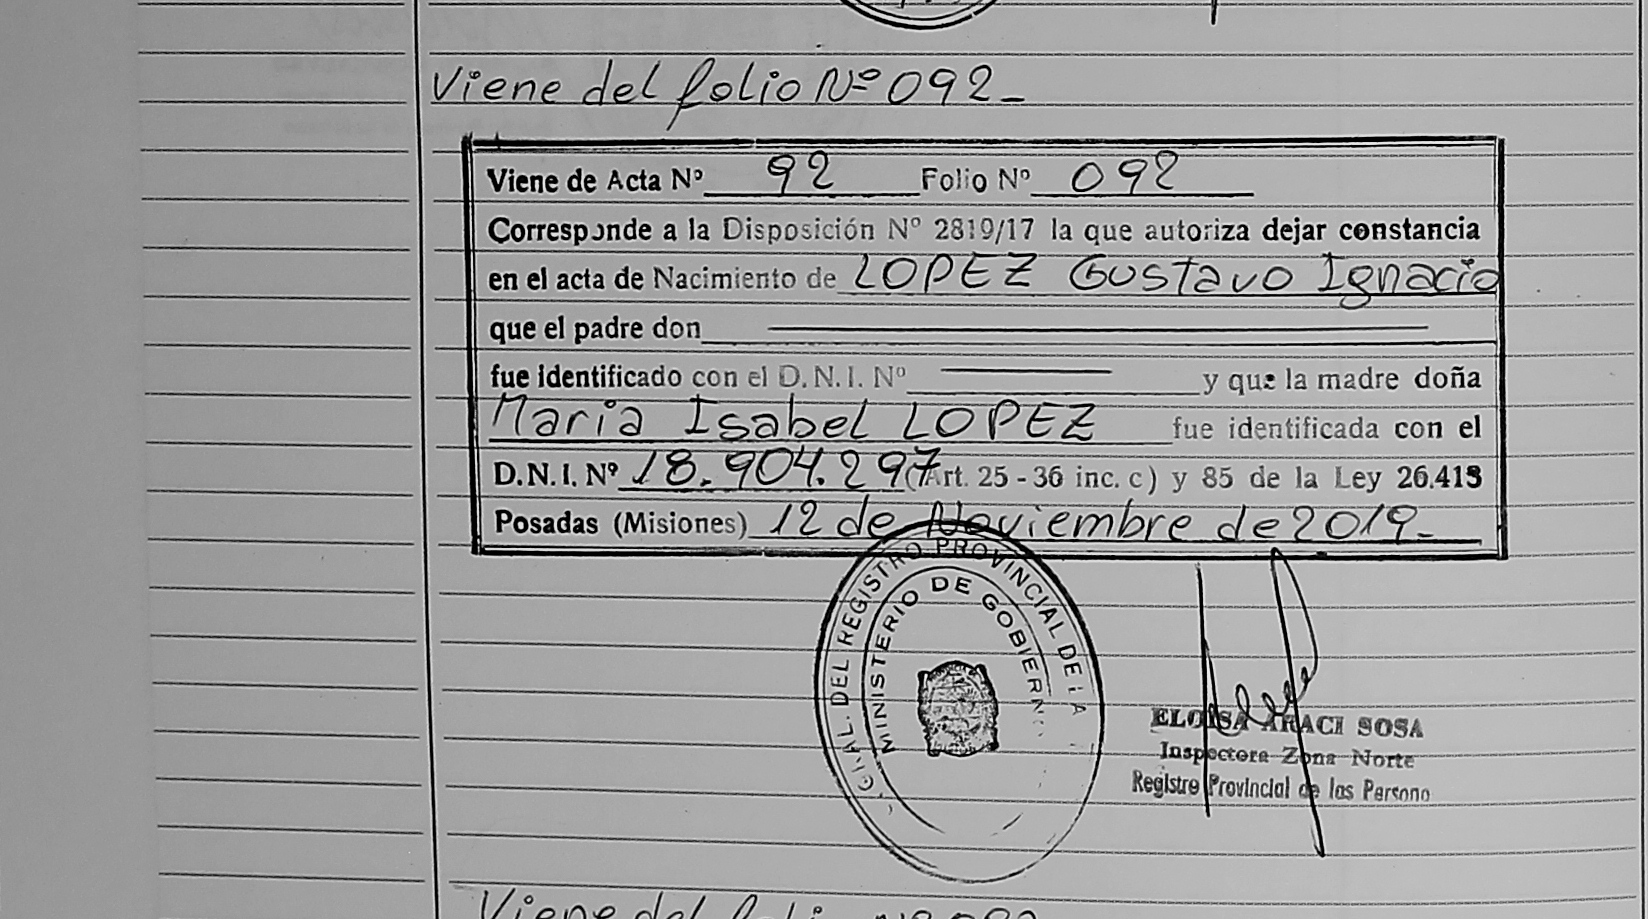 Viene del folio Nº 092_
Viene de Acta Nº 92 Folio Nº 092
Corresponde a la Disposición Nº 2819/17 la que autoriza dejar constancia
en el acta de Nacimiento de LOPEZ Gustavo Ignacio
que el padre don
fue identificado con el D.N.I. Nº y que la madre doña
Maria Isabel LOPEZ fue identificada con el
D.N.I. Nº 18.904.297 (Art. 25 - 36 inc. c) y 85 de la Ley 26.413
Posadas (Misiones) 12 de Noviembre de 2019_
GRAL. DEL REGISTRO PROVINCIAL DE LA
MINISTERIO DE GOBIERNO
ELOISA ARACI SOSA
Inspectora Zona Norte
Registro Provincial de las Persono
Viene del folio Nº 092